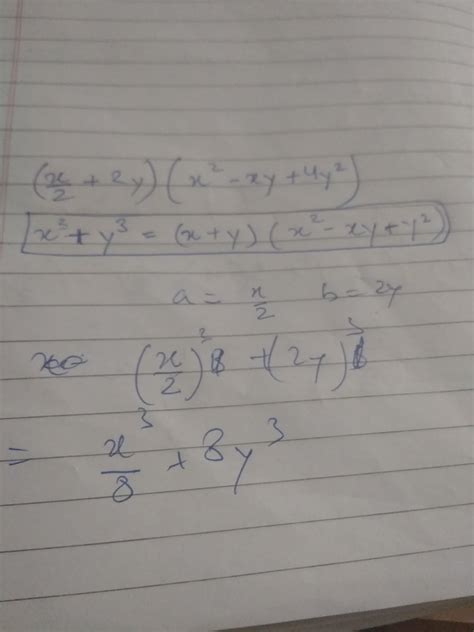 (x/2 + 2y) (x² - xy + 4y²)
x³ + y³ = (x + y) (x² - xy + y²)
a = x/2 b = 2y
(x/2)³ + (2y)³
= x³/8 + 8y³